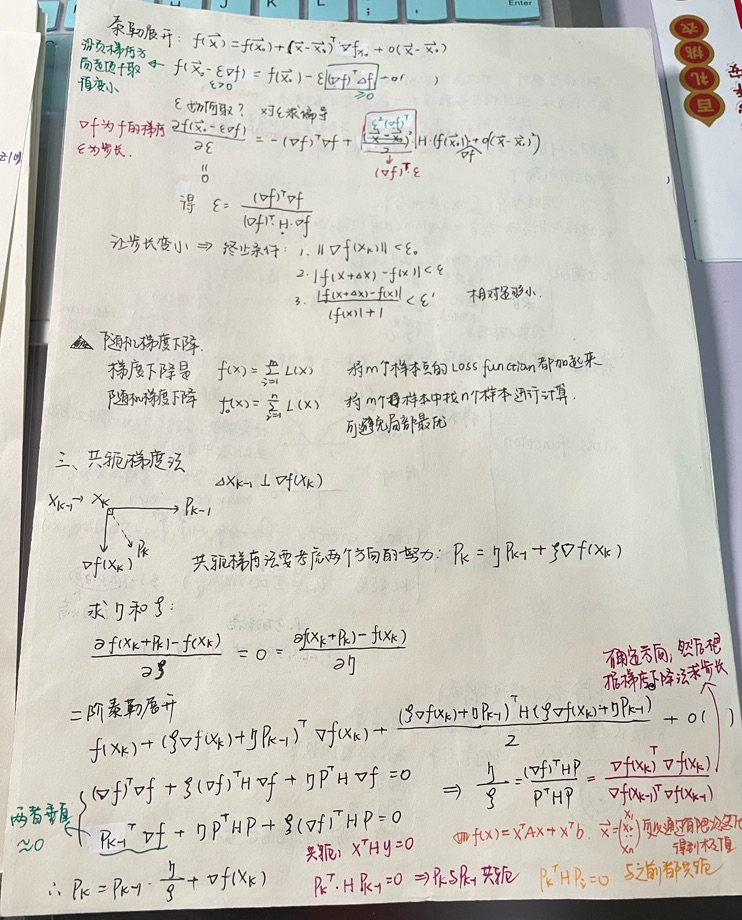 泰勒展开: f(x⃗) = f(x⃗₀) + (x⃗-x⃗₀)ᵀ ∇f_{x₀} + o(x⃗-x⃗₀)
沿负梯度方向走才取值变小 ← f(x⃗₀-ε∇f) = f(x⃗₀) - ε(∇f)ᵀ∆f - o( )
ε>0
≥0
ε如何取? 对ε求偏导
∇f为f的梯度
ε为步长.
∂f(x⃗₀-ε∇f)/∂ε = -(∇f)ᵀ∇f +
ε²(∇f)ᵀ
·H·
(∇f)ᵀε
∇f
=
0
得 ε = (∇f)ᵀ∇f / (∇f)ᵀ·H·∇f
让步长变小 ⇒ 终止条件: 1. ‖∇f(x_k)‖ < ε₀
2. |f(x+∆x) - f(x)| < ε
3. |f(x+∆x)-f(x)| / |f(x)|+1 < ε' 相对足够小.
随机梯度下降.
梯度下降是 f(x) = Σ_{i=1}^m L(x) 将m个样本点的Loss function都加起来
随机梯度下降 f₀(x) = Σ_{i=1}^n L(x) 将m个样本中按n个样本进行计算.
可避免局部最优
三、共轭梯度法
∆x_{k-1} ⊥ ∇f(x_k)
x_{k-1} → x_k
P_{k-1}
P_k
∇f(x_k)
共轭梯度法要考虑两个方向的努力: P_k = ηP_{k-1} + ξ∇f(x_k)
求η和ξ:
∂f(x_k+P_k)-f(x_k) / ∂ξ = 0 = ∂f(x_k+P_k)-f(x_k) / ∂η
确定方向, 然后根据梯度下降法求步长
二阶泰勒展开
f(x_k) + (ξ∇f(x_k)+ηP_{k-1})ᵀ ∇f(x_k) + (ξ∇f(x_k)+ηP_{k-1})ᵀH(ξ∇f(x_k)+ηP_{k-1}) / 2 + o( )
(∇f)ᵀ∇f + ξ(∇f)ᵀH∇f + ηPᵀH∇f = 0 ⇒ η/ξ = (∇f)ᵀHP / PᵀHP = ∇f(x_k)ᵀ∇f(x_k) / ∇f(x_{k-1})ᵀ∇f(x_{k-1})
两者垂直
≈0
P_{k-1}ᵀ∇f + ηPᵀHP + ξ(∇f)ᵀHP = 0
f(x) = xᵀAx + xᵀb. x⃗ =
得到极值
共轭: xᵀHy=0
∴ P_k = P_{k-1} · η/ξ + ∇f(x_k)
P_kᵀ·HP_{k-1}=0 ⇒ P_k与P_{k-1}共轭
P_kᵀHP_i=0 与之前都共轭
百礼挑衣
Enter